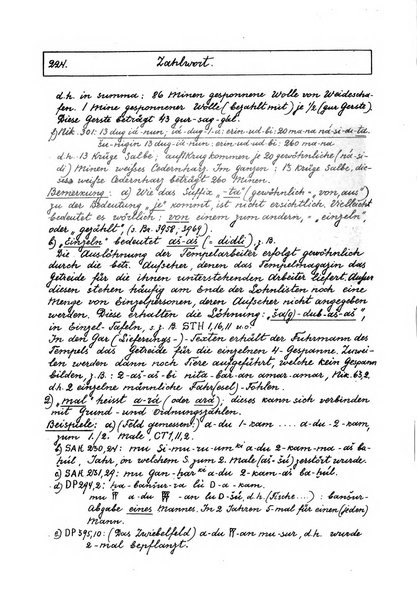 224.
Zahlwort.
d.h. in summa: 86 Minen gesponnene Wolle von Weideschafen.
1 Mine gesponnener Wolle (bezahlt mit) je 1/2 (gur Gerste).
Diese Gerste beträgt 43 gur-sag-gál.
Nik. 301: 13 dug ià-nun; ià-dug-1-a: erin-ud-bi: 20 ma-na ná-si-di-ta.
šu-nigin 13 dug ià-nun; erin-ud-bi: 260 ma-na
d.h. 13 Krüge Salbe; auf 1 Krug kommen je 20 gewöhnliche (ná-si-
di) Minen weißes Cedernharz. Im Ganzen: 13 Krüge Salbe, die-
ses weiße Cedernharz beträgt 260 Minen.
Bemerkung: a) Wie das Suffix „-ta" (gewöhnlich = „von, aus")
zu der Bedeutung „je" kommt, ist nicht ersichtlich. Vielleicht
bedeutet es wörtlich: von einem zum andern, = „einzeln",
oder „gezählt", (s. Br. 3958; 3969).
b) „Einzeln" bedeutet aš-aš (= didli), z.B.
Die Auslöhnung der Tempelarbeiter erfolgt gewöhnlich
durch die betr. Aufseher, denen das Tempelmagazin das
Getreide für die ihnen unterstehenden Arbeiter liefert. Außer
diesen stehen häufig am Ende der Lohnlisten noch eine
Menge von Einzelpersonen, deren Aufseher nicht angegeben
werden. Diese erhalten die Löhnung: „ša(g)-dub-aš-aš",
in Einzel-Tafeln, s. z. B. STH 1,16, II
In den Gar (Lieferungs-)-Texten erhält der Fuhrmann des
Tempels das Getreide für die einzelnen 4-Gespanne. Zuwei-
len werden dann noch Tiere aufgeführt, welche kein Gespann
bilden, z.B.: 2-aš-aš-bi nita-bar-an amar-amar, Nik. 63,2,
d.h. 2 einzelne männliche Fahr(esel)-Fohlen.
2) „mal" heisst a-rá (oder ará); dieses kann sich verbinden
mit Grund- und Ordnungszahlen.
Beispiele: a) (Feld gemessen) a-du 1-kam .... a-du 2-kam,
zum 1./2. Male, CT 1, II, 2.
b) SAK 230,24: mu Si-mu-ru-um ki a-du 2-kam-ma-aš ba-
ḫul, Jahr, in welchem S. zum 2. Male (aš = šú) zerstört wurde.
c) SAK 231,29: mu Gan-ḫar ki a-du 2-kam-aš ba-ḫul.
d) DP 294,2: ḫa-banšur-ra lú D-a-kam.
mu a-du -an lú D-šú, d.h. (Fische...): banšur-
Abgabe eines Mannes. In 2 Jahren 5-mal für einen (jeden)
Mann.
e) DP 395,10: (Das Zwiebelfeld) a-du -an mu-sur, d.h. wurde
2-mal bepflanzt.